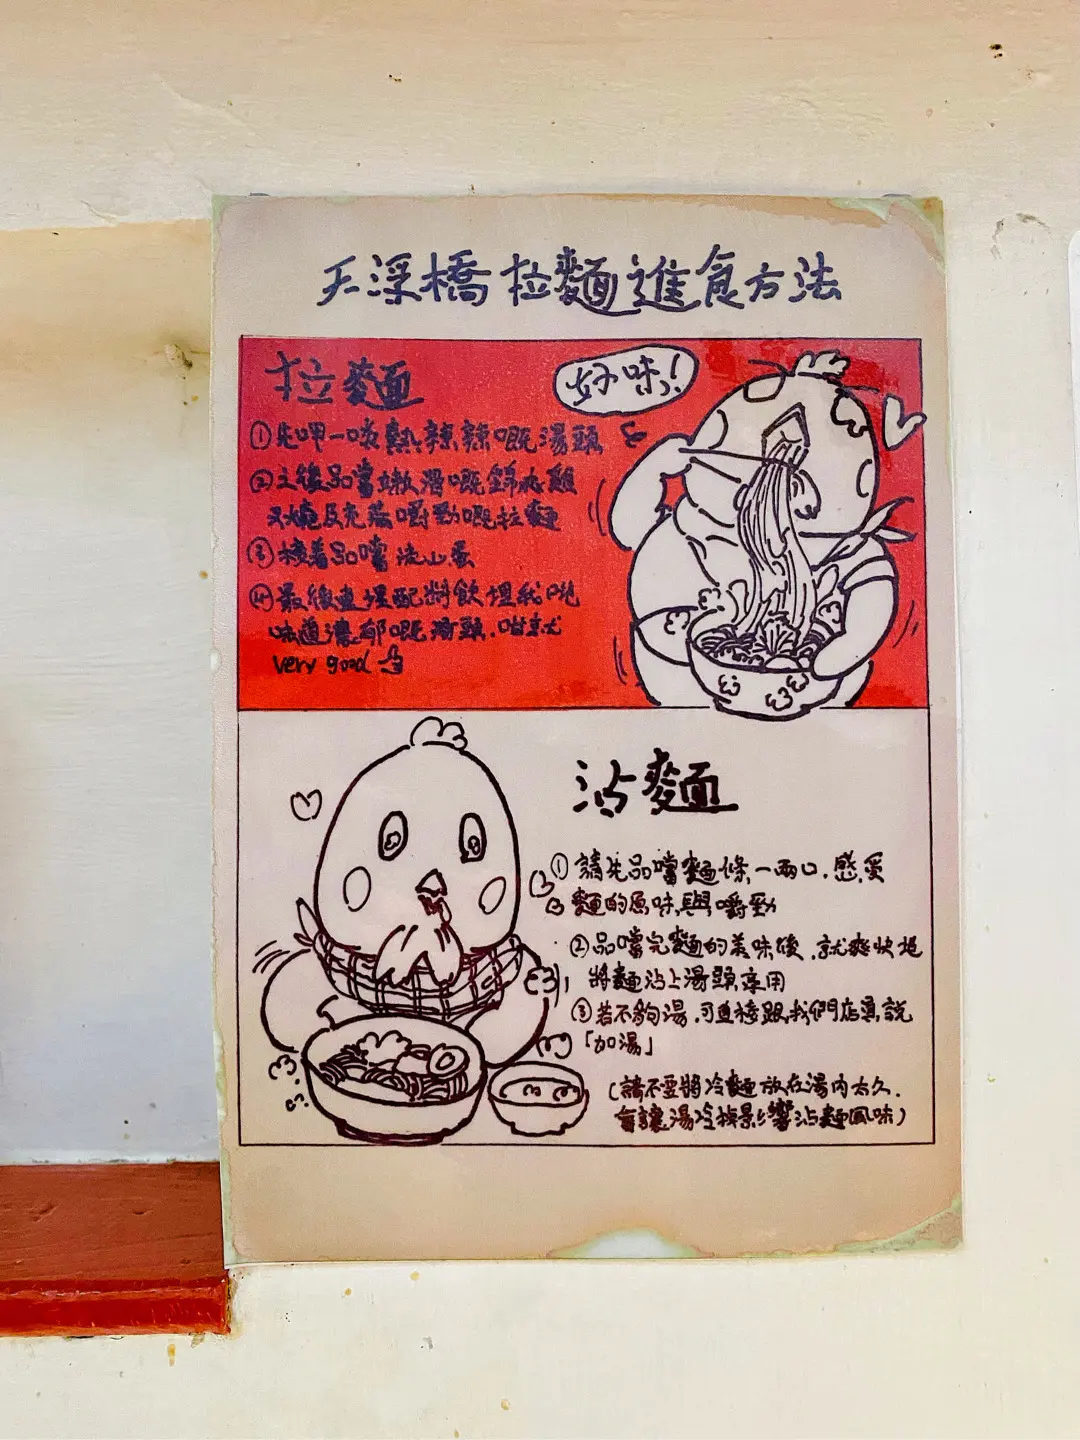 天深橋拉麵進食方法
拉麵
好味!
①先呷一啖熱辣辣嘅湯頭
②之後品嚐嫩滑嘅錦爽雞
叉燒及充滿嚼勁嘅拉麵
③接着品嚐流心蛋
④最後直埋配料飲埋我哋
味道濃郁嘅湯頭,咁就
very good
沾麵
①請先品嚐麵條一兩口,感受
麵的原味與嚼勁
②品嚐完麵的美味後,就爽快地
將麵沾上湯頭享用
③若不夠湯,可直接跟我們店員說
「加湯」
(請不要將冷麵放在湯內太久,
會讓湯冷掉影響沾麵風味)